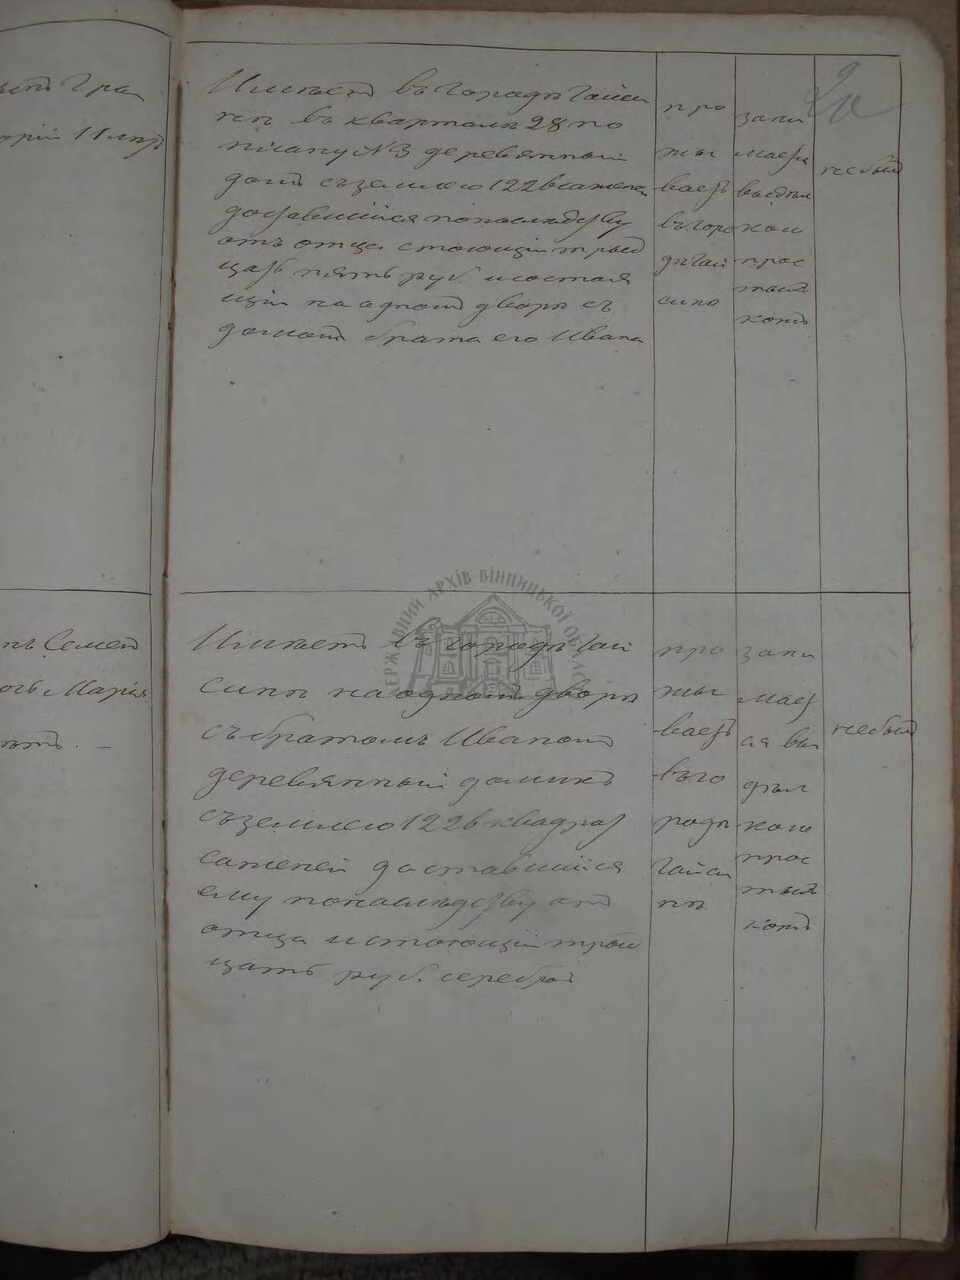 2а
Имѣетъ въ городѣ Гайси
нѣ въ кварталѣ 28 по
плану № 3 деревянный
домъ съ землею 122 в сажен
доставшійся по наслѣдству
отъ отца стоющій трыд
цать пять руб. и состоя
щій на одномъ дворѣ съ
домомъ брата его Ивана
про
жи
ваетъ
въ горо
дѣ Гай
синѣ
зани
маетъ
выдѣл
кои
прос
тыхъ
кожъ
небылъ
Имѣетъ въ городѣ Гай
синѣ на одномъ дворѣ
съ братомъ Иваномъ
деревянный домикъ
съ землею 122 в квадрат
саженей доставшійся
ему по наслѣдству отъ
отца и стоющій трид
цать руб. серебромъ
про
жи
ваетъ
въ го
родѣ
Гайси
нѣ
зани
мает
ся вы
дѣл
кою
прос
тыхъ
кожъ
небылъ
нъ Семен
очь Марія
ДЕРЖАВНИЙ АРХІВ ВІННИЦЬКОЇ ОБЛАСТІ